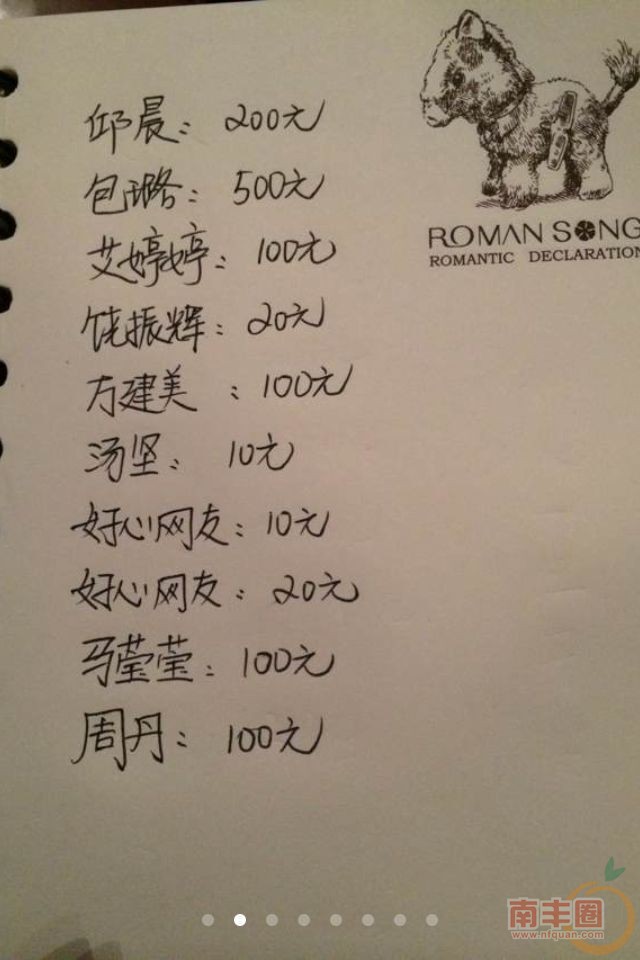 邱晨：200元
包璐：500元
艾婷婷：100元
饶振辉：20元
方建美：100元
汤坚：10元
好心网友：10元
好心网友：20元
马莹莹：100元
周丹：100元
ROMAN SONG
ROMANTIC DECLARATION
南丰圈
www.nfquan.com